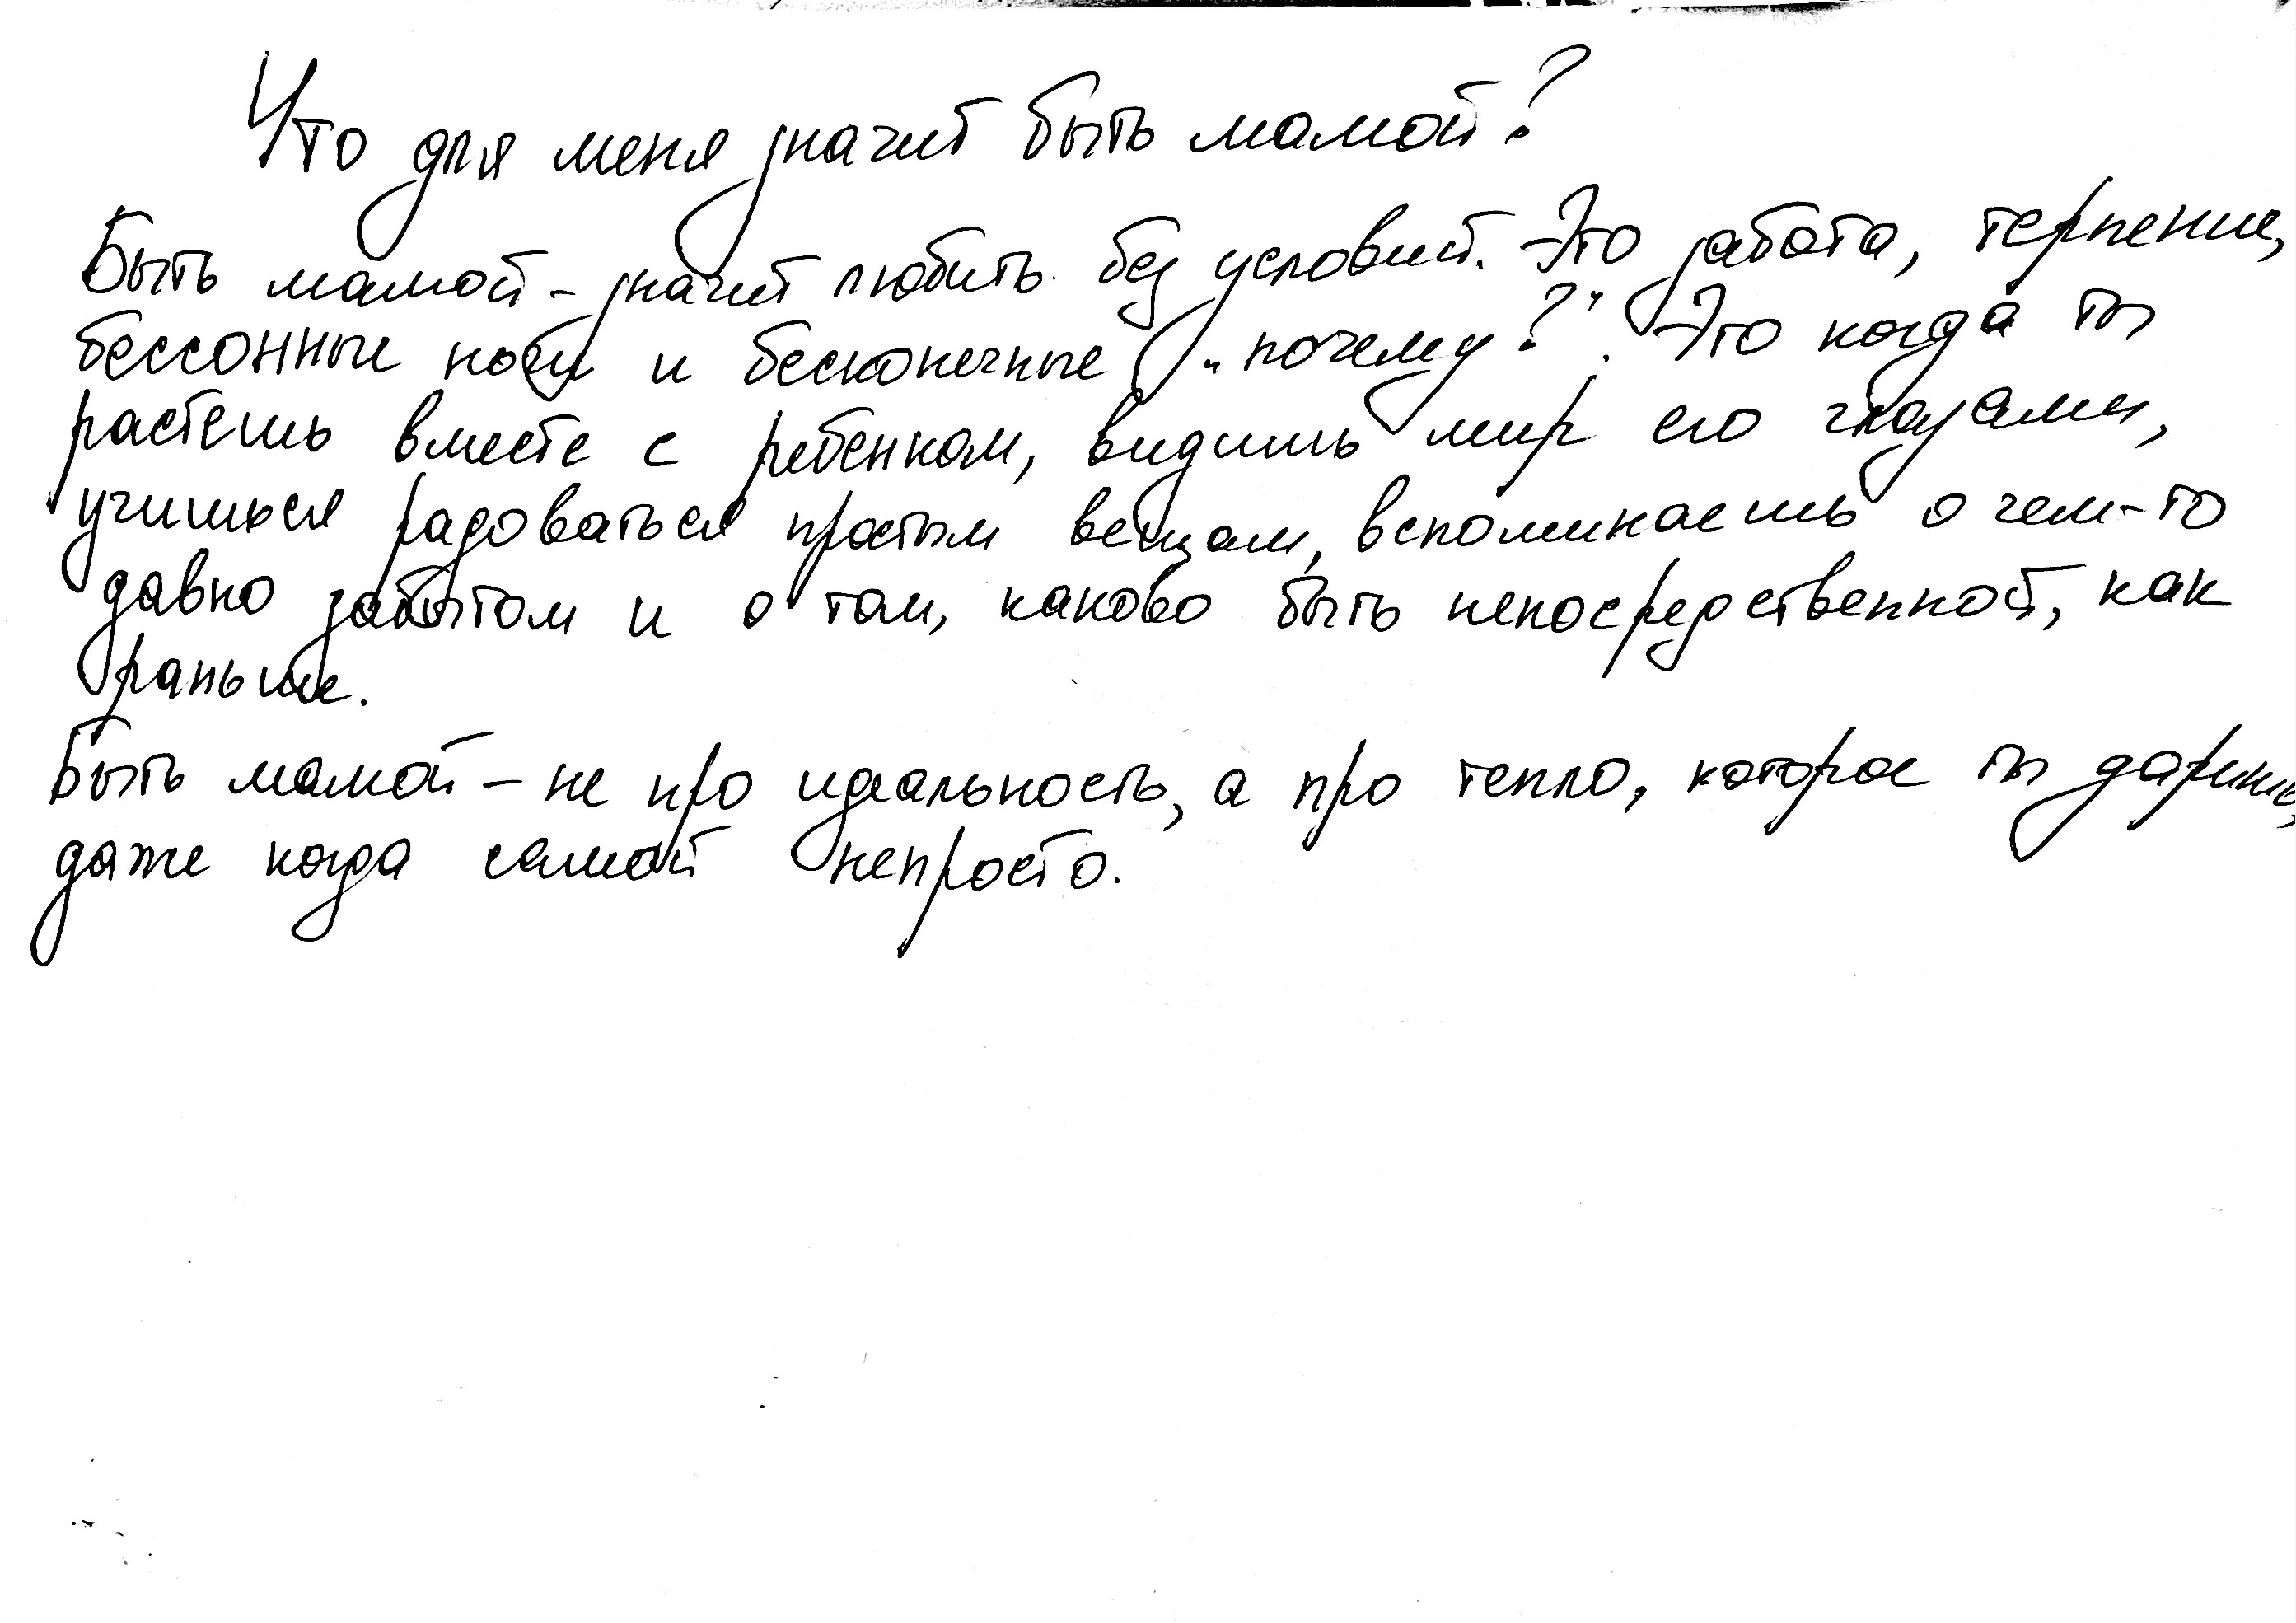 Что для меня значит быть мамой?
Быть мамой - значит любить без условий. Это забота, терпение,
бессонные ночи и бесконечные „почему?". Это когда ты
растешь вместе с ребенком, видишь мир его глазами,
учишься радоваться простым вещам, вспоминаешь о чем-то
давно забытом и о том, каково быть непосредственной, как
раньше.
Быть мамой - не про идеальность, а про тепло, которое ты даришь,
даже когда самой непросто.